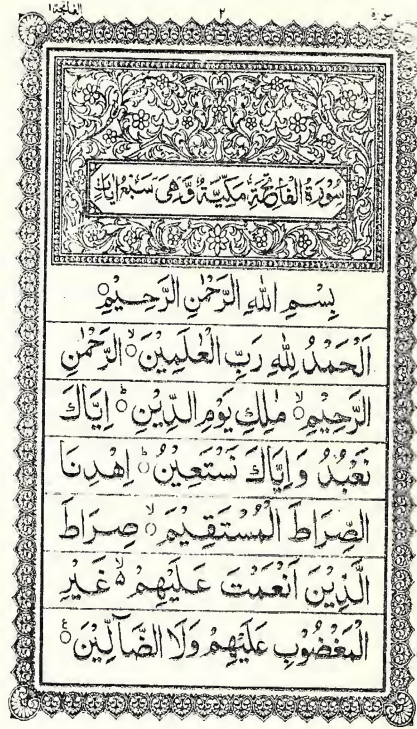 سورة ٢ الفاتحة ١
سُوْرَةُ الْفَاتِحَةِ مَكِّيَّةٌ وَّهِيَ سَبْعُ اٰيَاتٍ
بِسْمِ اللهِ الرَّحْمٰنِ الرَّحِيْمِ
اَلْحَمْدُ لِلّٰهِ رَبِّ الْعٰلَمِيْنَ ۙ الرَّحْمٰنِ
الرَّحِيْمِ ۙ مٰلِكِ يَوْمِ الدِّيْنِ ؕ اِيَّاكَ
نَعْبُدُ وَ اِيَّاكَ نَسْتَعِيْنُ ؕ اِهْدِنَا
الصِّرَاطَ الْمُسْتَقِيْمَ ۙ صِرَاطَ
الَّذِيْنَ اَنْعَمْتَ عَلَيْهِمْ ۙ غَيْرِ
الْمَغْضُوْبِ عَلَيْهِمْ وَلَا الضَّآلِّيْنَ